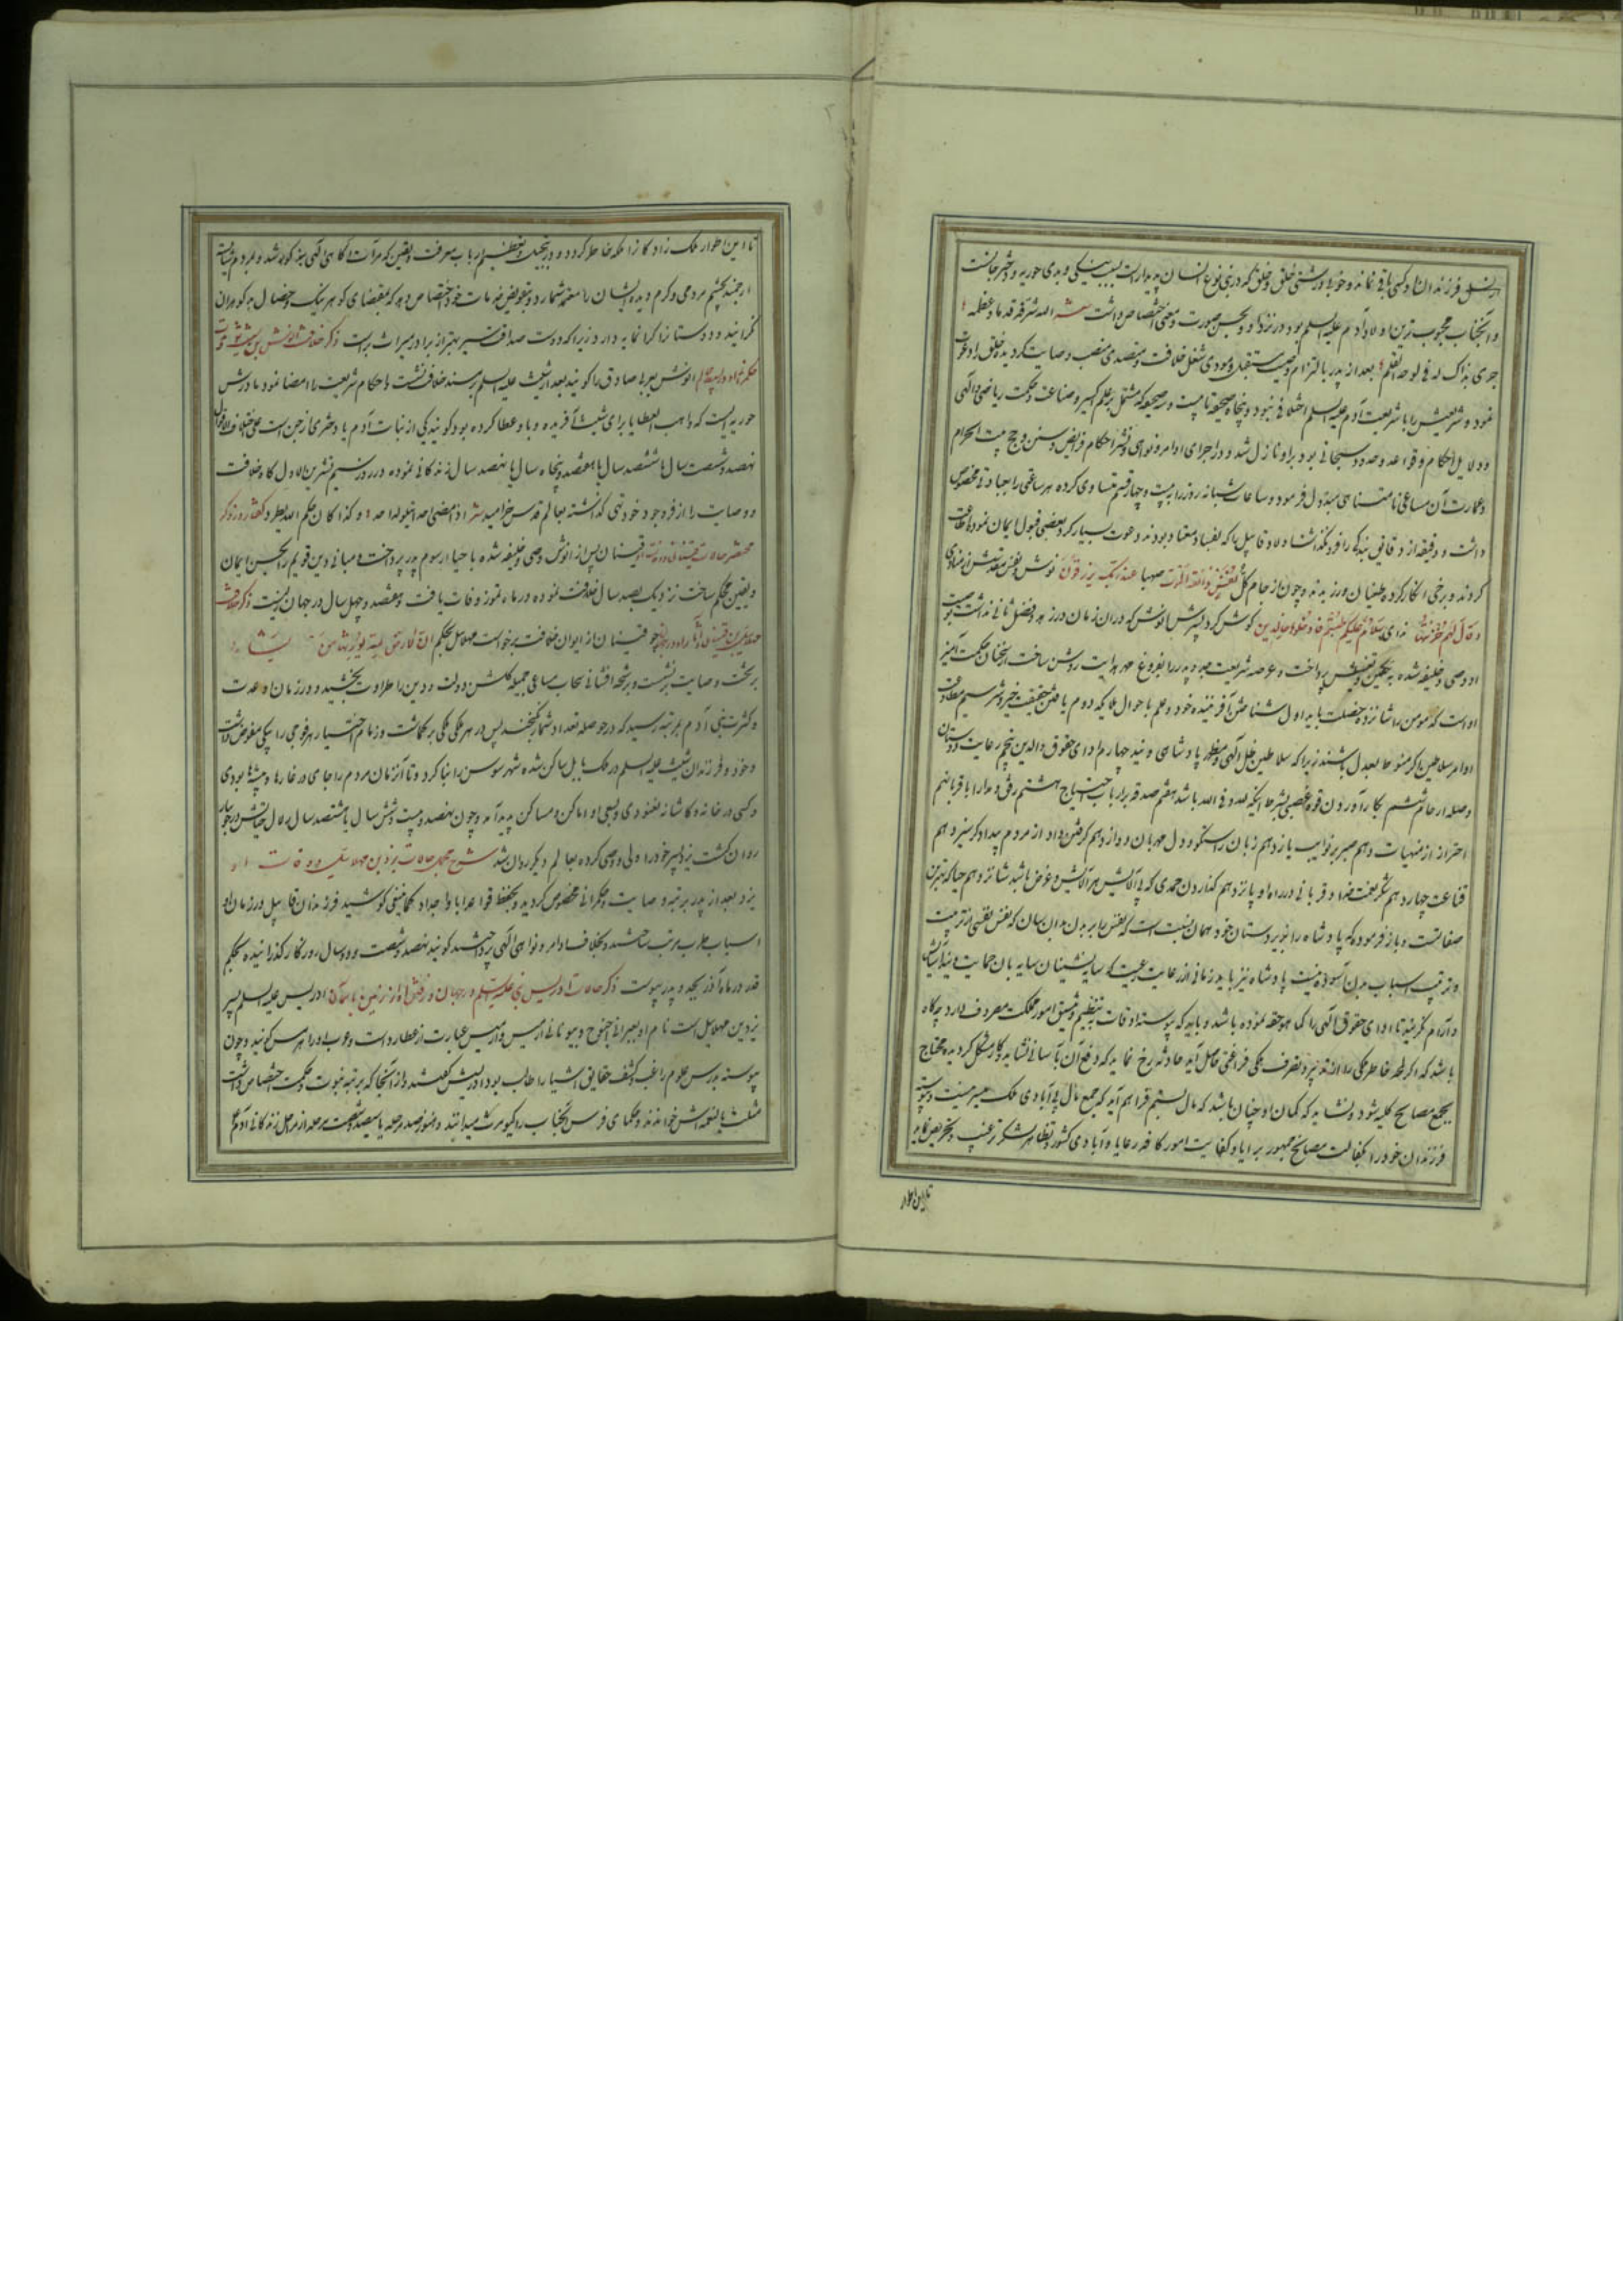 از نسل فرزندان او کسی باقی نمانده و خوبی و زشتی خلق و خلق که در بنی نوع انسان پدیدار است بسبب نیکی و بدی حوریه و دختر جانست
و آنجناب محبوب ترین اولاد آدم علیه السلام بود در نزد او و بحسن صورت و معنی اختصاص داشت الله شرفه قدما و عظمه
جری بذاک له فی لوحه القلم بعد از پدر بالتزام وصیت مستقبل و مودی شغل خلافت و متصدی منصب وصایت گردیده خلق را دعوت
نموده شریعتش را با شریعت آدم علیه السلام اختلافی نبود و پنجاه صحیفه تا بیست و نه صحیفه که مشتمل بر علم اکسیر و صناعت و حکمت ریاضی و الهی
و دلایل احکام و قواعد و حدود سبحانی بود براو نازل شد و در اجرای اوامر و نواهی و نشر احکام فرایض و سنن و حج بیت الحرام
و عمارت آن مساعی نامتناهی مبذول فرمود و ساعات شبانه روز را به بیست و چهار قسم متساوی کرده هر ساعتی را بعبادتی مخصوص
داشت و دقیقه از دقایق بندگی را فرو نگذاشت اولاد قابیل را که بفساد معتاد بودند دعوت بسیار کرد بعضی قبول ایمان نموده اطاعت
کردند و برخی انکار کرده طغیان ورزیدند و چون از جام کل نفس ذائقة الموت صهبا عند ربک یرزقون نوش و نفس مقدسش از منادی
و قال لهم خزنتها ندای سلام علیکم طبتم فادخلوها خالدین گوش کرد پسرش انوش که در آن زمان در زهد و فضل ثانی نداشت بوصیت
او وصی و خلیفه شده به تکفین پرداخت و عرصه شریعت جد و پدر را بفروغ مهر هدایت روشن ساخت از سخنان حکمت آمیز
اوست که مومن را شانزده خصلت باید اول شناختن آفریننده خود و علم باحوال ملایکه دوم یافتن حقیقت خیر و شر سیم مطاوعت
اوامر سلاطین اگر متوغل بعدل باشند زیرا که سلاطین ظل الهی و مظهر پادشاهی ونید چهارم ادای حقوق والدین پنجم رعایت دوستان
وصله ارحام ششم بکار آوردن قوه غضبی بشرط اینکه لله و فی الله باشد هفتم صدقه بر ارباب احتیاج هشتم رفق و مدارا با قربا نهم
احتراز از منهیات دهم صبر بر نوایب یازدهم زبان راستگو و دل مهربان دوازدهم گرفتن داد از مردم بیدادگر سیزدهم
قناعت چهاردهم شکر نعمت خدا و قربانی در راه او پانزدهم گذاردن حمدی که بی آلایش هر آلایش و غرض باشد شانزدهم حیا که بهترین
صفاتست و باز فرموده که پادشاه را بر زیردستان خود همان نسبت است که نفس را بر بدن بدان سان که نفس نفسی از تربیت
و ترتیب اسباب بدن آسوده نیست پادشاه نیز باید زمانی از رعایت رعیت که سایه نشینان سایه بان حمایت ویند آسایش
و آرام نگزیند تا ادای حقوق الهی را کما هو حقه نموده باشد و باید که پیوسته اوقات بتنظیم و تنسیق امور مملکت مصروف دارد چه گاه
باشد که اگر لحظه خاطر ملکی را از تدبیر و تصرف ملکی فراغتی حاصل آید حادثه رخ نماید که دفع آن بآسانی نشاید و کار مشکل گردیده محتاج
بجمع مصالح کلیه شود و نشاید که گمان او چنان باشد که مال بستم فراهم آید که جمع مال بی آبادی ملک میسر نیست و پیوسته
فرزندان خود را بکفالت مصالح جمهور برایا و کفایت امور کافه رعایا و آبادی کشور و تظاهر لشکر ترغیب و تحریص نماید
تا این اطوار
تا این اطوار ملک زادگان را ملکه خاطر گردد و در تبجیل و تعظیم ارباب معرفت و یقین که مرآت آگاهی الهی سینه گوید شد و مردم شایسته
ارجمند بچشم مردمی و کرم دیده ایشان را مغتنم شمارد و بتفویض خدمات خود اختصاص دهد که بمقتضای گوهر نیک و خصال به گوهران
گرایند و دوستان را گرانمایه دارد زیرا که دوست صداقت سیر بهتر از برادر میراث بر است ذکر خلافت انوش بن شیث و
حکمرانی او انوش بعربی صادق را گویند بعد از شیث علیه السلام بر مسند خلافت نشست و احکام شریعت را امضا نمود مادرش
حوریه ایست که واهب العطایا برای شیث آفریده و باو عطا کرده بود گویند یکی از بنات آدم یا دختری از جن است علی اختلاف الاقوال
نهصد و شصت سال یا ششصد سال یا هفتصد و پنجاه سال یا نهصد سال زندگانی نموده در روز سیم تشرین الاول گاه خلافت
و وصایت را از فر وجود خود تهی گذاشته بعالم قدس خرامید اذ انقضی احد اتیلو له احد و کذا کان حکم الله یطرد گفتار در ذکر
مختصر حالات قینان قینان پس از انوش وصی و خلیفه شده باحیا رسوم پدر پرداخت و مبانی دین قویم را بحسن ایمان
و یقین محکم ساخت نزدیک بصد سال خلافت نموده در ماه تموز وفات یافت و هفتصد و چهل سال در جهان بزیست ذکر خلافت
مهلائیل بن قینان چو قینان از ایوان خلافت برخواست مهلائیل بحکم ان الارض لله یورثها من یشاء
بر تخت وصایت بنشست و برشحه افشانی سحاب مساعی جمیله گلشن دولت و دین را طراوت بخشید و در زمان او عدت
و کثرت بنی آدم بمرتبه رسید که در حوصله تعداد شمار نگنجند پس در هر ملکی ملکی برگماشت و زمام اختیار هر فوجی را بیکی مفوض داشت
و خود و فرزندان شیث علیه السلام در ملک بابل ساکن شده شهر سوس را بنا کرد و تا آنزمان مردم را جای در غارها و بیشه ها بودی
و کسی در خانه و کاشانه نغنودی و بسعی او اماکن و مساکن پدید آمد و چون نهصد و بیست و شش سال یا هشتصد سال زلال حیاتش در جویبار
روان گشت یزد پسر خود را ولی و وصی کرده بعالم دیگر روان شد شرح مجمل حالات یزد بن مهلائیل و وفات او
یزد بعد از پدر برتبه وصایت و حکمرانی مخصوص گردید و بحفظ قواعد ابا و اجداد کما ینبغی کوشید فرزندان قابیل در زمان او
اسباب طرب مرتب ساختند و بخلاف اوامر و نواهی الهی پرداختند گویند نهصد و شصت و دو سال روزگار گذرانیده بحکم
قدر در ماه آذر بجد و پدر پیوست ذکر حالات ادریس نبی علیه السلام در جهان و رفتن او از زمین بآسمان ادریس علیه السلام پسر
یزد بن مهلائیل است نام او بعبرانی اخنوخ و بیونانی ارمیس و ارمیس عبارت از عطارد است و عرب او را هرمس گویند و چون
پیوسته بدرس علوم راغب و کشف حقایق اشیا را طالب بود ادریسش گفتند و از آنجا که برتبه نبوت و حکمت اختصاص داشت
مثلث بالنعمه اش خواندند و حکمای فرس آنجناب را کیومرث میدانند و هنوز صد مرحله یا سیصد و شصت مرحله از مراحل زندگانی آدم